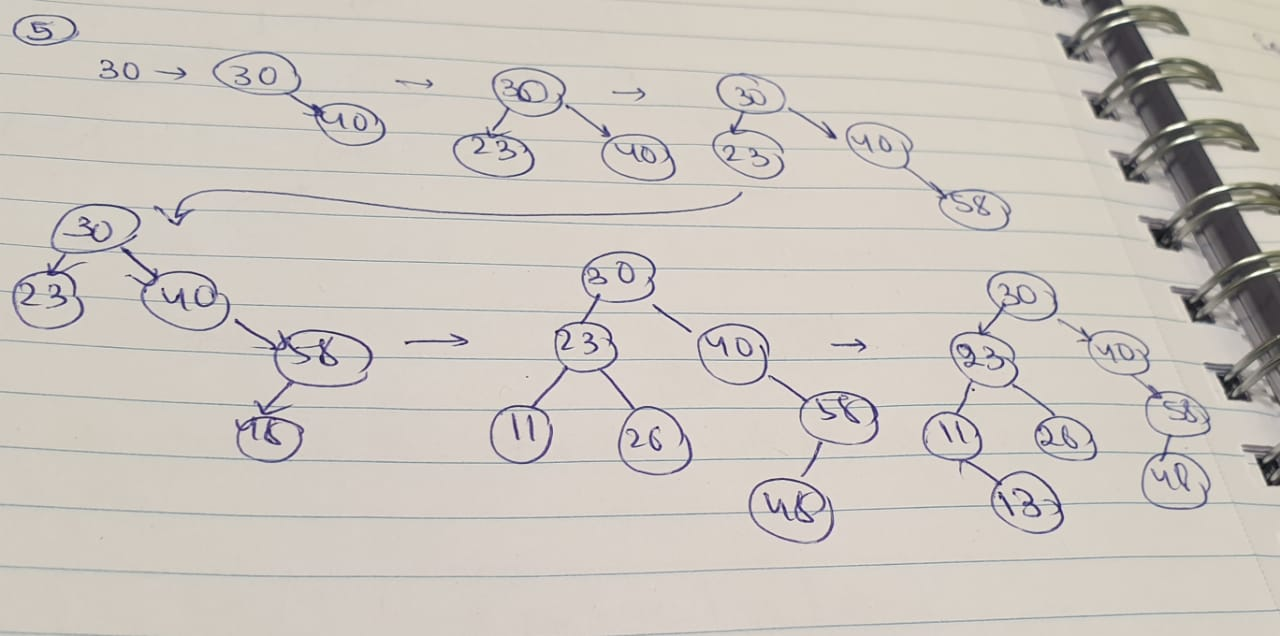 5
30 → 30 → 30 → 30
40 23 40 23 40
58
30
23 40
58
48
→
30
23 40
11 26 58
48
→
30
23 40
11 26 58
13 48